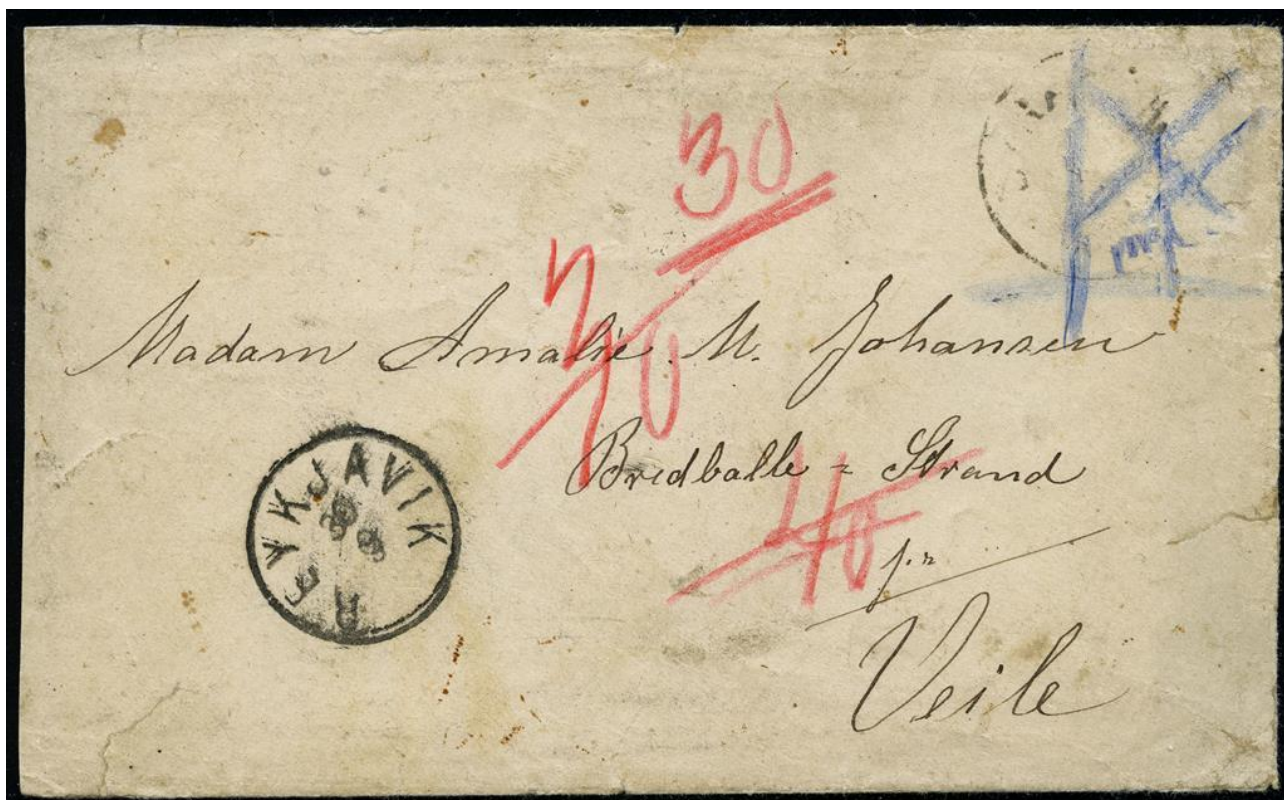 30
Madam Amalie M. Johansen
40
Bredballe = Strand
pr
Veile
REYKJAVIK